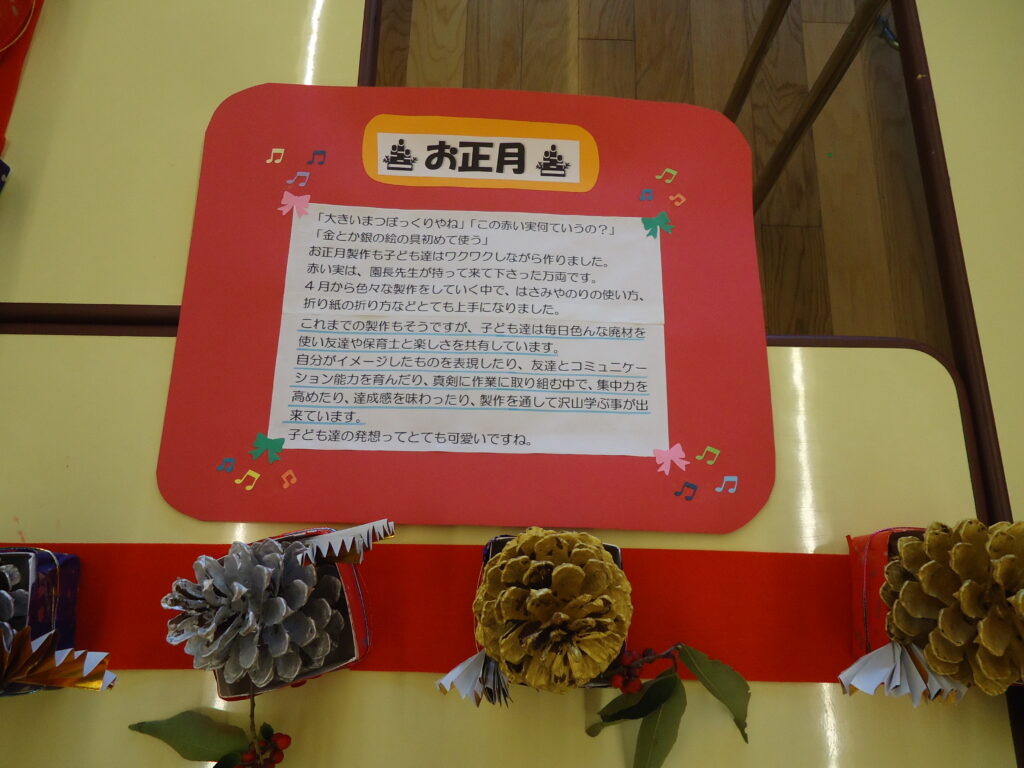 お正月
「大きいまつぼっくりやね」「この赤い実何ていうの？」
「金とか銀の絵の具初めて使う」
お正月製作も子ども達はワクワクしながら作りました。
赤い実は、園長先生が持って来て下さった万両です。
４月から色々な製作をしていく中で、はさみやのりの使い方、
折り紙の折り方などとても上手になりました。
これまでの製作もそうですが、子ども達は毎日色んな廃材を
使い友達や保育士と楽しさを共有しています。
自分がイメージしたものを表現したり、友達とコミュニケー
ション能力を育んだり、真剣に作業に取り組む中で、集中力を
高めたり、達成感を味わったり、製作を通して沢山学ぶ事が出
来ています。
子ども達の発想ってとても可愛いですね。